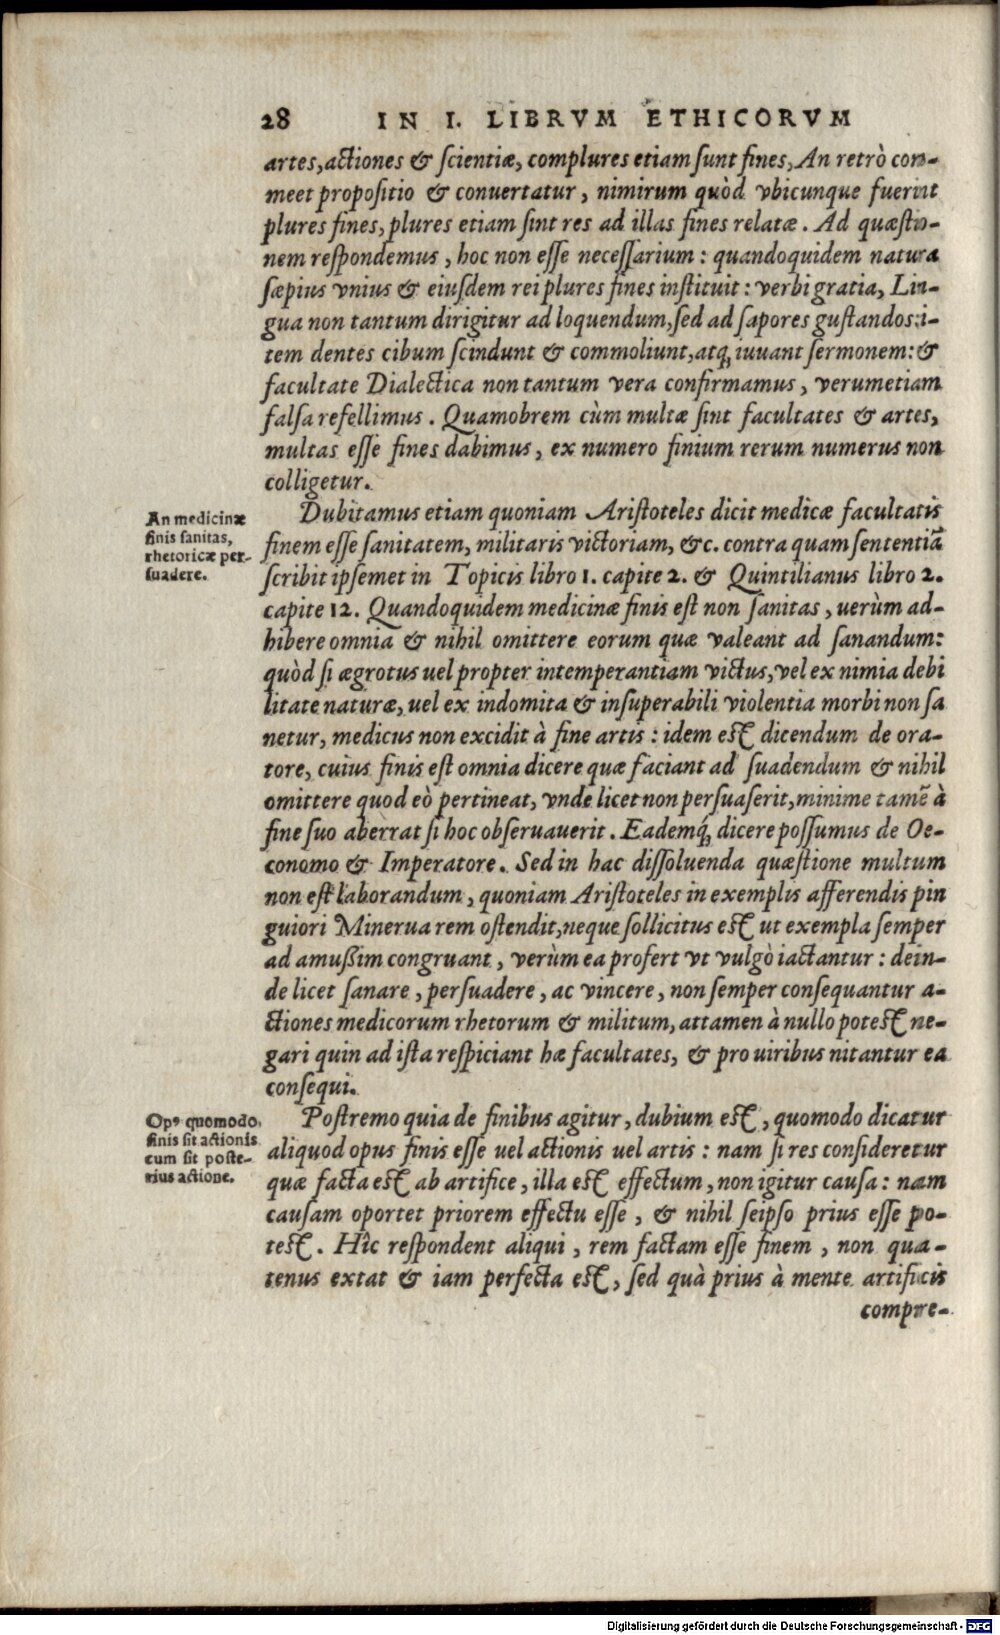 28 IN I. LIBRVM ETHICORVM
artes, actiones & scientiæ, complures etiam sunt fines, An retrò com-
meet propositio & conuertatur, nimirum quòd vbicunque fuerint
plures fines, plures etiam sint res ad illas fines relatæ. Ad quæstio-
nem respondemus, hoc non esse necessarium: quandoquidem natura
sæpius vnius & eiusdem rei plures fines instituit: verbi gratia, Lin-
gua non tantum dirigitur ad loquendum, sed ad sapores gustandos: i-
tem dentes cibum scindunt & commoliunt, atq; iuuant sermonem: &
facultate Dialectica non tantum vera confirmamus, verumetiam
falsa refellimus. Quamobrem cùm multæ sint facultates & artes,
multas esse fines dabimus, ex numero finium rerum numerus non
colligetur.
An medicinæ
finis sanitas,
rhetoricæ per-
suadere.
Dubitamus etiam quoniam Aristoteles dicit medicæ facultatis
finem esse sanitatem, militaris victoriam, &c. contra quam sententiã
scribit ipsemet in Topicis libro 1. capite 2. & Quintilianus libro 2.
capite 12. Quandoquidem medicinæ finis est non sanitas, uerùm ad-
hibere omnia & nihil omittere eorum quæ valeant ad sanandum:
quòd si ægrotus uel propter intemperantiam victus, vel ex nimia debi
litate naturæ, uel ex indomita & insuperabili violentia morbi non sa
netur, medicus non excidit à fine artis: idem est dicendum de ora-
tore, cuius finis est omnia dicere quæ faciant ad suadendum & nihil
omittere quod eò pertineat, vnde licet non persuaserit, minime tamẽ à
fine suo aberrat si hoc obseruauerit. Eademq́; dicere possumus de Oe-
conomo & Imperatore. Sed in hac dissoluenda quæstione multum
non est laborandum, quoniam Aristoteles in exemplis afferendis pin
guiori Minerua rem ostendit, neque sollicitus est ut exempla semper
ad amußim congruant, verùm ea profert vt vulgò iactantur: dein-
de licet sanare, persuadere, ac vincere, non semper consequantur a-
ctiones medicorum rhetorum & militum, attamen à nullo potest ne-
gari quin ad ista respiciant hæ facultates, & pro uiribus nitantur ea
consequi.
Opꝰ quomodo
finis sit actionis
cum sit poste-
rius actione.
Postremo quia de finibus agitur, dubium est, quomodo dicatur
aliquod opus finis esse uel actionis uel artis: nam si res consideretur
quæ facta est ab artifice, illa est effectum, non igitur causa: nam
causam oportet priorem effectu esse, & nihil seipso prius esse po-
test. Hîc respondent aliqui, rem factam esse finem, non qua-
tenus extat & iam perfecta est, sed quà prius à mente artificis
compre-
Digitalisierung gefördert durch die Deutsche Forschungsgemeinschaft - DFG